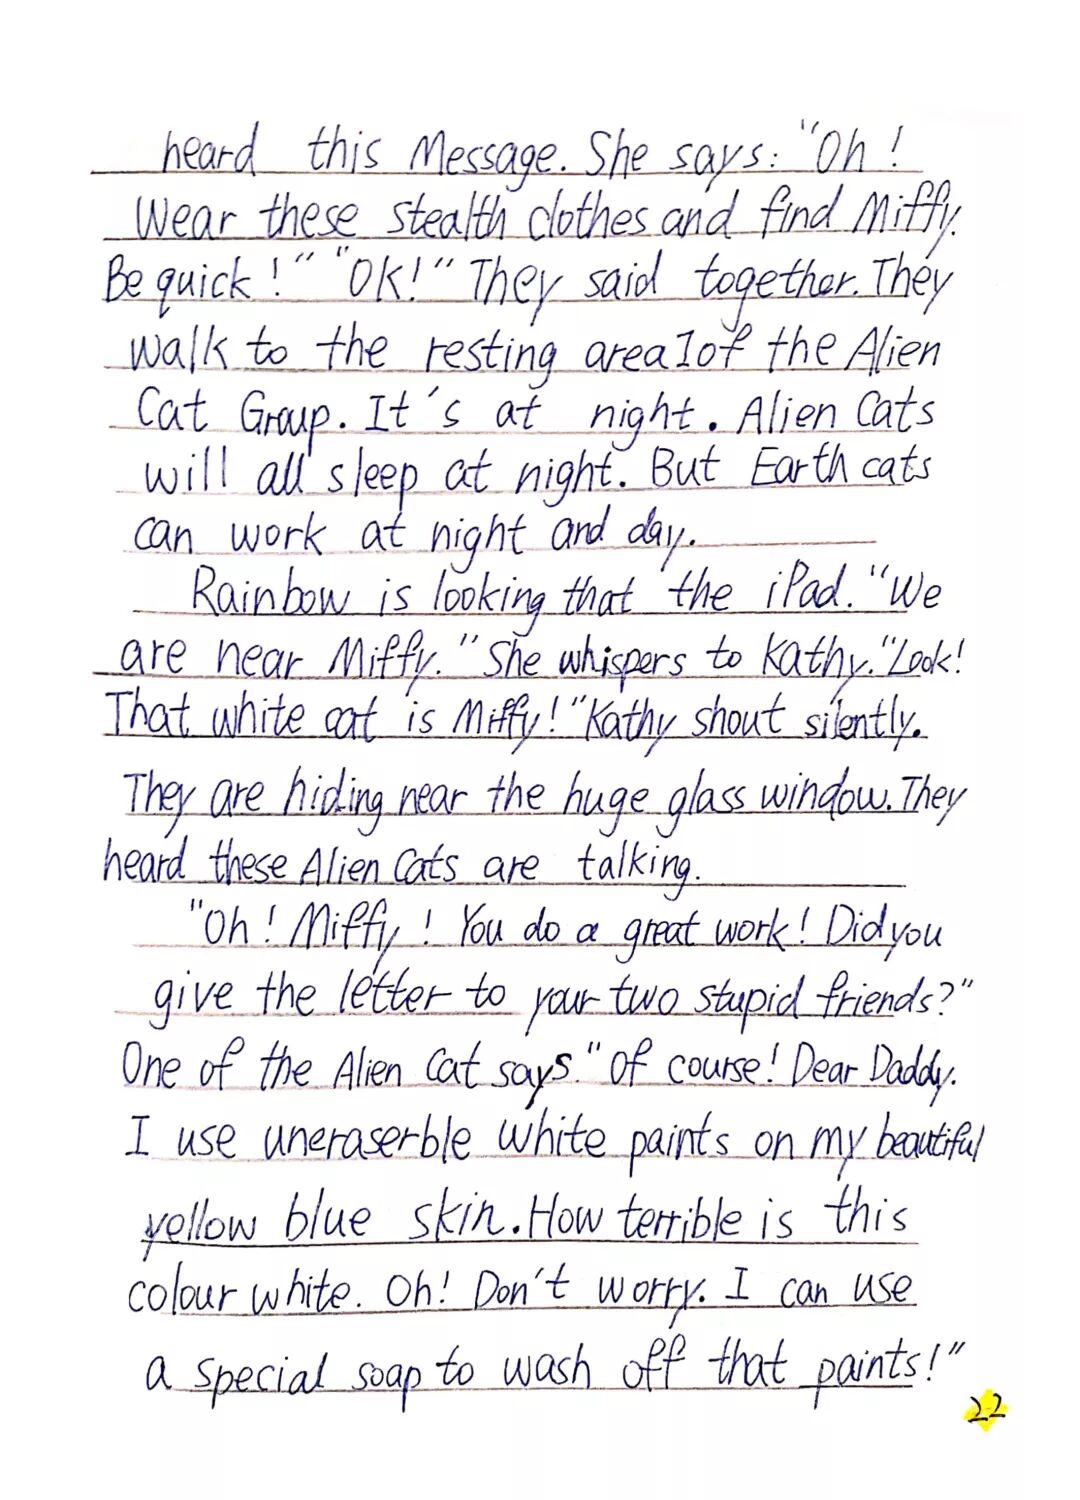 heard this Message. She says: "Oh!
Wear these stealth clothes and find Miffy.
Be quick!" "OK!" They said together. They
walk to the resting area 1 of the Alien
Cat Group. It's at night. Alien Cats
will all sleep at night. But Earth cats
can work at night and day.
Rainbow is looking that the iPad. "We
are near Miffy." She whispers to Kathy. "Look!
That white cat is Miffy!" Kathy shout silently.
They are hiding near the huge glass window. They
heard these Alien Cats are talking.
"Oh! Miffy! You do a great work! Did you
give the letter to your two stupid friends?"
One of the Alien Cat says. "Of course! Dear Daddy.
I use uneraserble white paints on my beautiful
yellow blue skin. How terrible is this
colour white. Oh! Don't worry. I can use
a special soap to wash off that paints!"
22